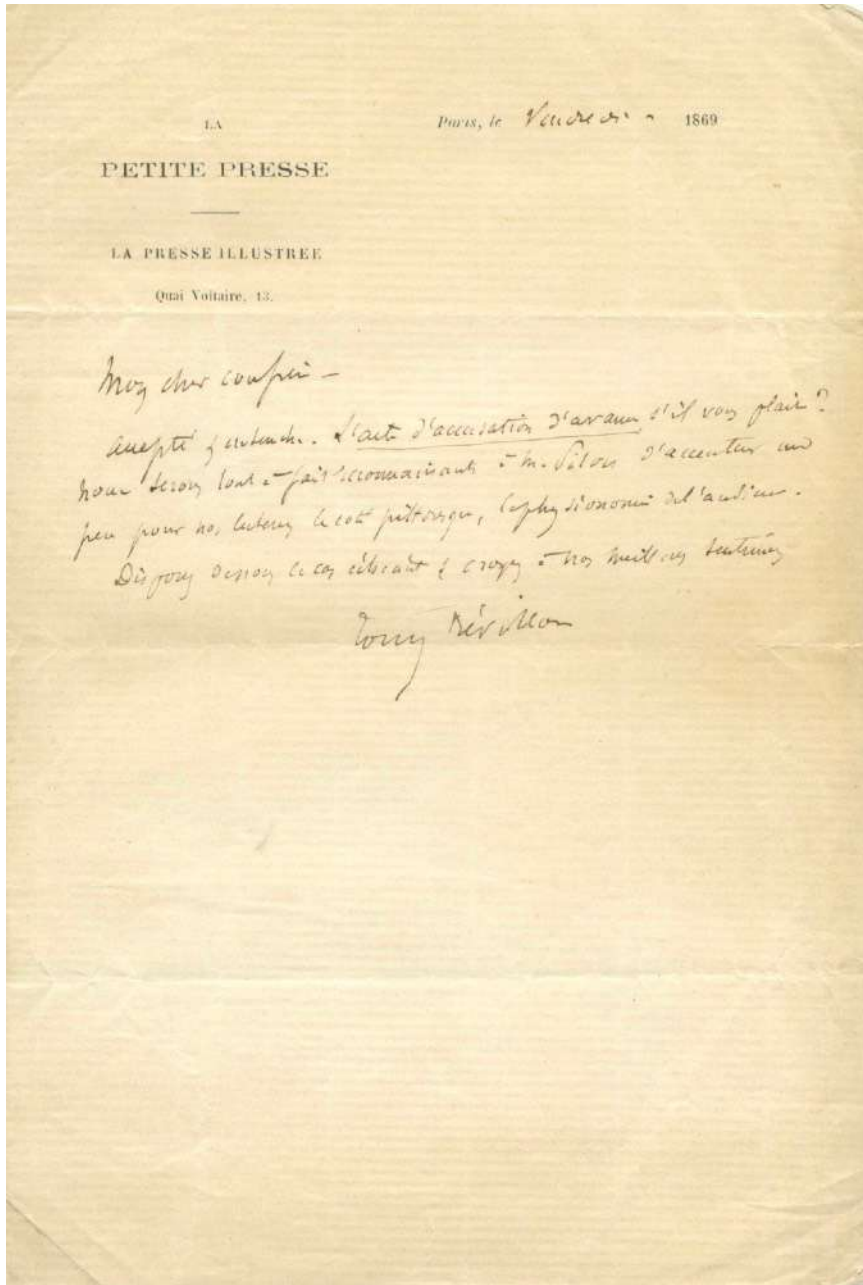 LA
PETITE PRESSE
LA PRESSE ILLUSTREE
Quai Voltaire, 13.
Paris, le Vendredi 1869
Mon cher confrère –
Accepté & entendu. L'acte d'accusation d'avance s'il vous plait ?
nous serons tout à fait reconnaissants à M. d'accentuer un
peu pour nos lecteurs le coté pittoresque, la physionomie de l'audience.
Disposez de nous le cas échéant & croyez à nos meilleurs sentiments
Tony Révillon